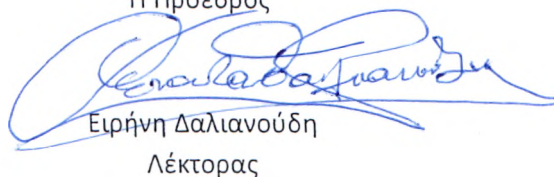 Η Πρόεδρος
Ειρήνη Δαλιανούδη
Λέκτορας